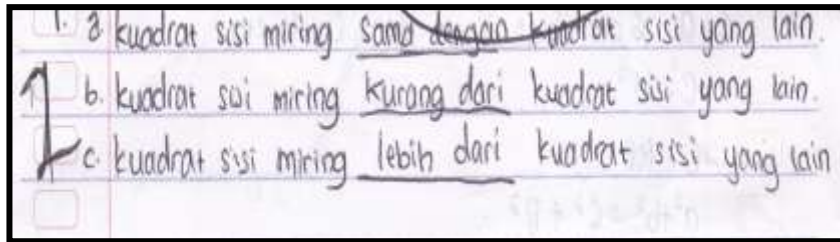 1. a. kuadrat sisi miring sama dengan kuadrat sisi yang lain.
b. kuadrat sisi miring kurang dari kuadrat sisi yang lain.
c. kuadrat sisi miring lebih dari kuadrat sisi yang lain